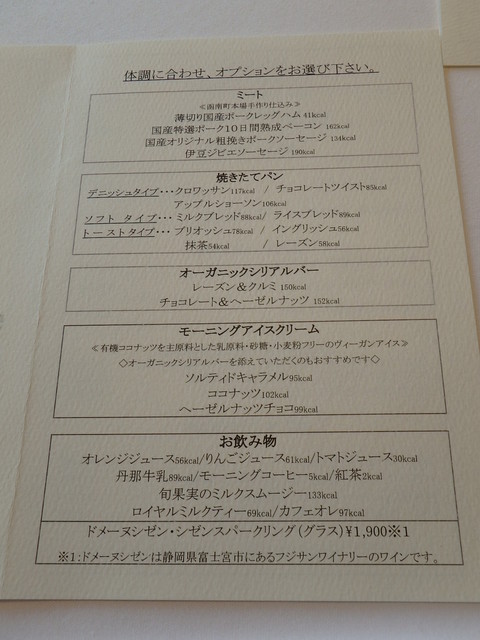 体調に合わせ、オプションをお選び下さい。
ミート
≪函南町本場手作り仕込み≫
薄切り国産ポークレッグハム 41kcal
国産特選ポーク10日間熟成ベーコン 162kcal
国産オリジナル粗挽きポークソーセージ 134kcal
伊豆ジビエソーセージ 190kcal
焼きたてパン
デニッシュタイプ・・・クロワッサン117kcal / チョコレートツイスト85kcal
アップルショーソン106kcal
ソフト タイプ・・・ミルクブレッド88kcal/ ライスブレッド89kcal
トーストタイプ・・・ブリオッシュ78kcal / イングリッシュ56kcal
抹茶54kcal / レーズン58kcal
オーガニックシリアルバー
レーズン&クルミ 150kcal
チョコレート&ヘーゼルナッツ 152kcal
モーニングアイスクリーム
≪有機ココナッツを主原料とした乳原料・砂糖・小麦粉フリーのヴィーガンアイス≫
◇オーガニックシリアルバーを添えていただくのもおすすめです◇
ソルティドキャラメル95kcal
ココナッツ102kcal
ヘーゼルナッツチョコ99kcal
お飲み物
オレンジジュース56kcal/りんごジュース61kcal/トマトジュース30kcal
丹那牛乳89kcal/モーニングコーヒー5kcal/紅茶2kcal
旬果実のミルクスムージー133kcal
ロイヤルミルクティー69kcal/カフェオレ97kcal
ドメーヌシゼン・シゼンスパークリング(グラス)¥1,900※1
※1:ドメーヌシゼンは静岡県富士宮市にあるフジサンワイナリーのワインです。